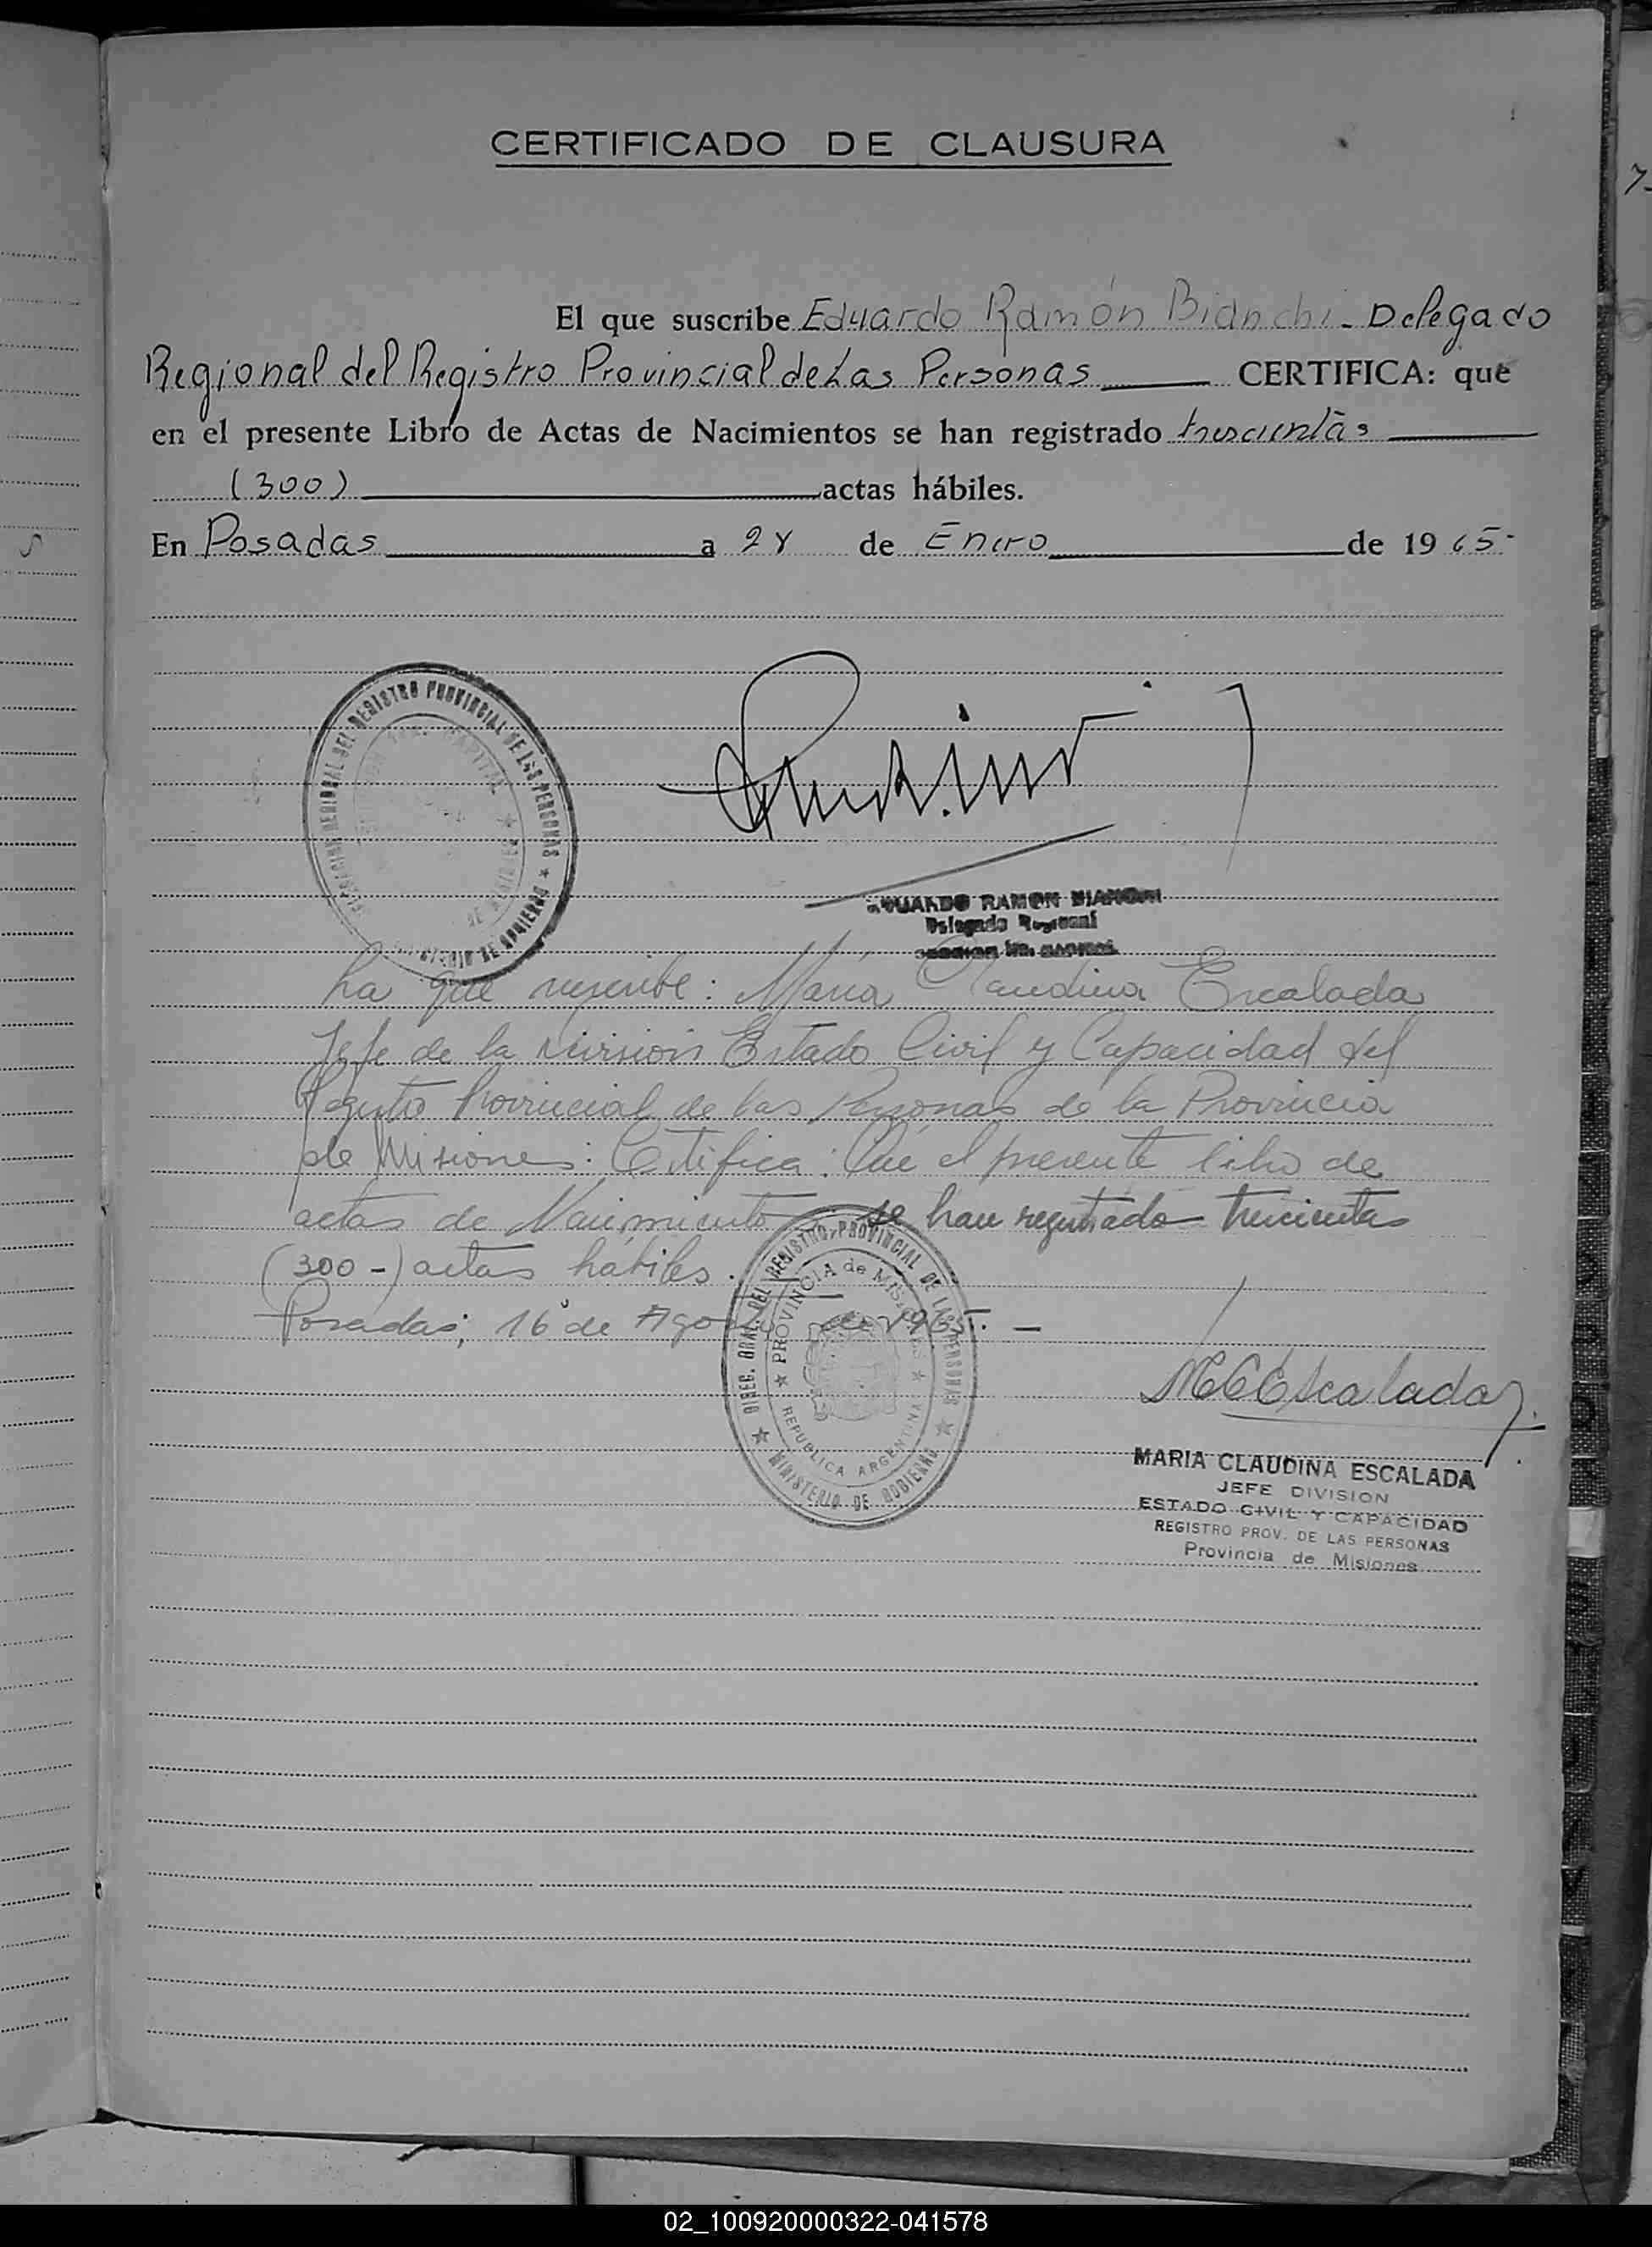 CERTIFICADO DE CLAUSURA
El que suscribe Eduardo Ramón Bianchi - Delegado
Regional del Registro Provincial de Las Personas CERTIFICA: que
en el presente Libro de Actas de Nacimientos se han registrado trescientas
(300) actas hábiles.
En Posadas a de Enero de 1965-
REGIONAL DEL REGISTRO PROVINCIAL DE LAS PERSONAS
RAMON BIANCHI
Delegado Regional
La que suscribe: María Claudina Escalada
Jefe de la División Estado Civil y Capacidad del
Registro Provincial de las Personas de la Provincia
de Misiones: Certifica: Que el presente libro de
actas de Nacimiento se han registrado trescientas
(300-) actas hábiles.
Posadas; 16 de Agosto de 1965. -
DIREC. GRAL. DEL REGISTRO PROVINCIAL DE LAS PERSONAS
MINISTERIO DE GOBIERNO
PROVINCIA de MISIONES
REPUBLICA ARGENTINA
MCEscalada
MARIA CLAUDINA ESCALADA
JEFE DIVISION
ESTADO CIVIL Y CAPACIDAD
REGISTRO PROV. DE LAS PERSONAS
Provincia de Misiones
02_100920000322-041578